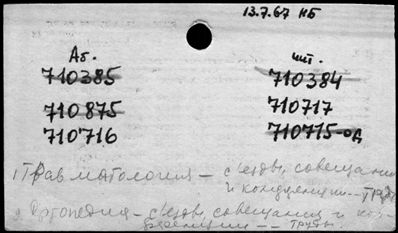 13.7.67 НБ
Аб. чит.
710385 710384
710875 710717
710716 710715-од
1 Травматология - съезды, совещания
и конференции -- Труды
2 Ортопедия - съезды, совещания и кон-
ференции -- Труды.